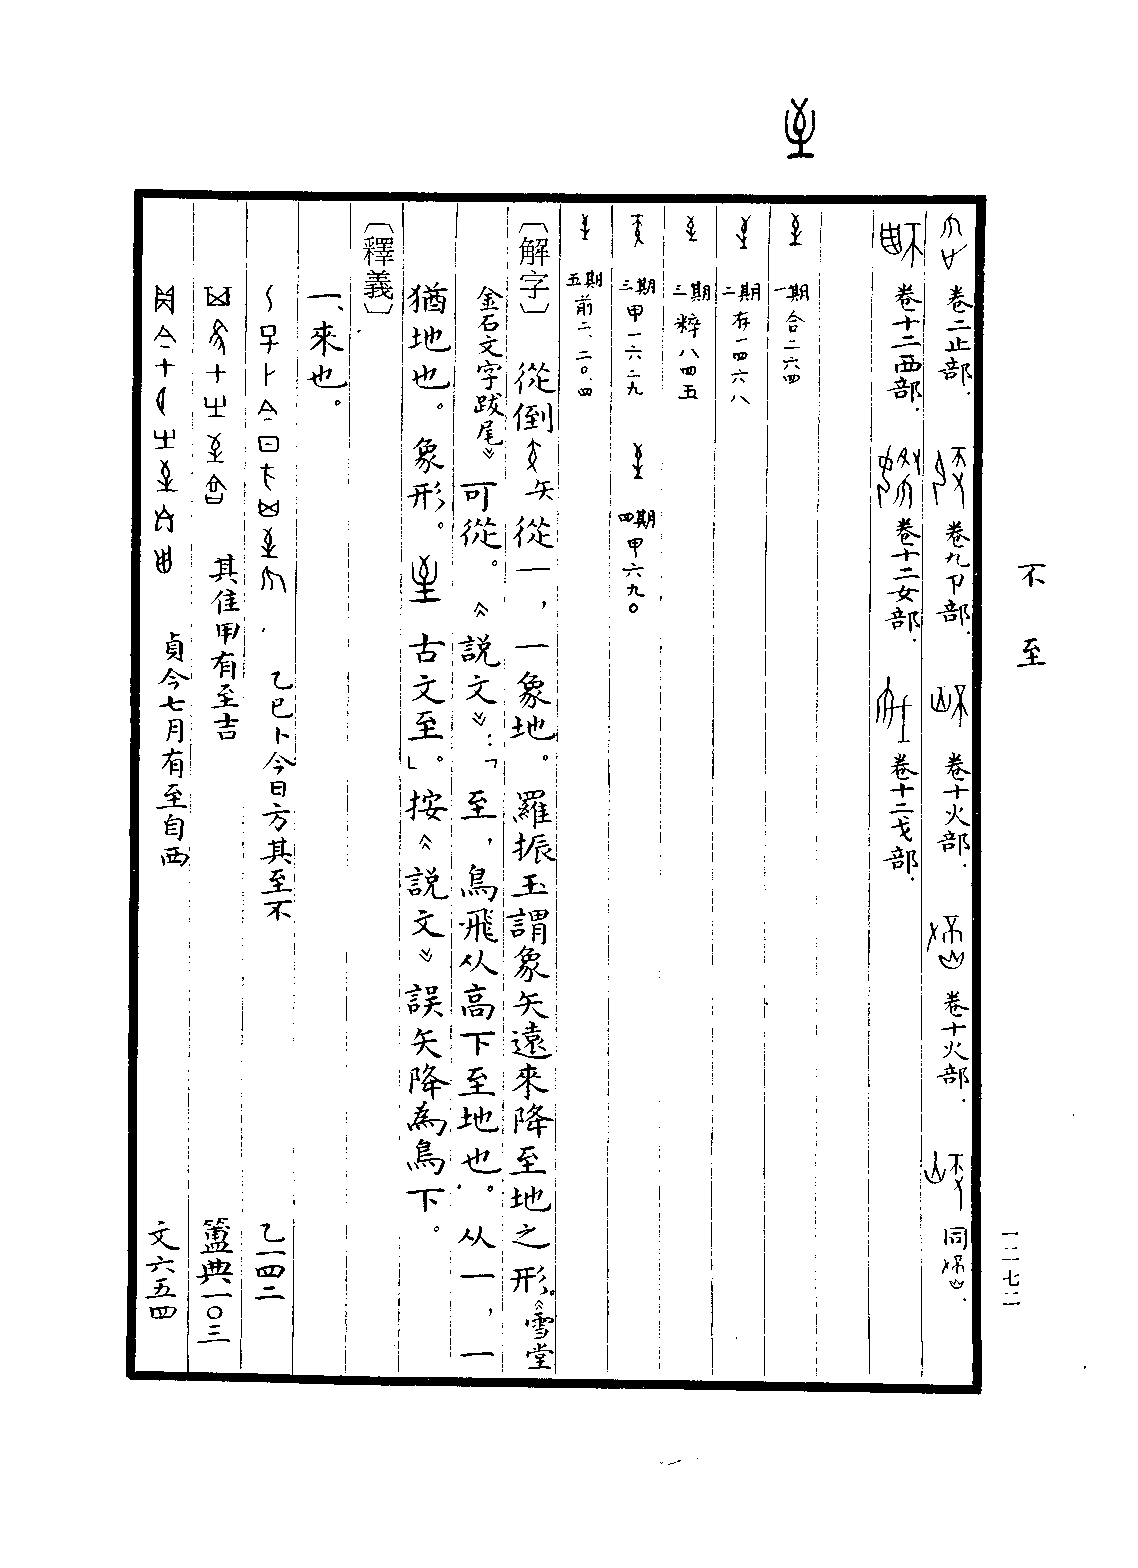 不 至
一二七二
卷二止部. 卷九卩部. 卷十火部. 卷十火部. 同
卷十二西部. 卷十二女部. 卷十二戈部.
一期 合二六四
二期 存一四六八
三期 粹八四五
三期 甲一六二九 四期 甲六九〇
五期 前二、二〇.四
〔解字〕 從倒矢從一，一象地。羅振玉謂象矢遠來降至地之形。《雪堂
金石文字跋尾》可從。《說文》：「至，鳥飛从高下至地也。从一，一
猶地也。象形。 古文至」。按《說文》誤矢降為鳥下。
〔釋義〕
一、來也。
乙巳卜今日方其至不 乙一四二
其隹甲有至吉 簠典一〇三
貞今七月有至自西 文六五四